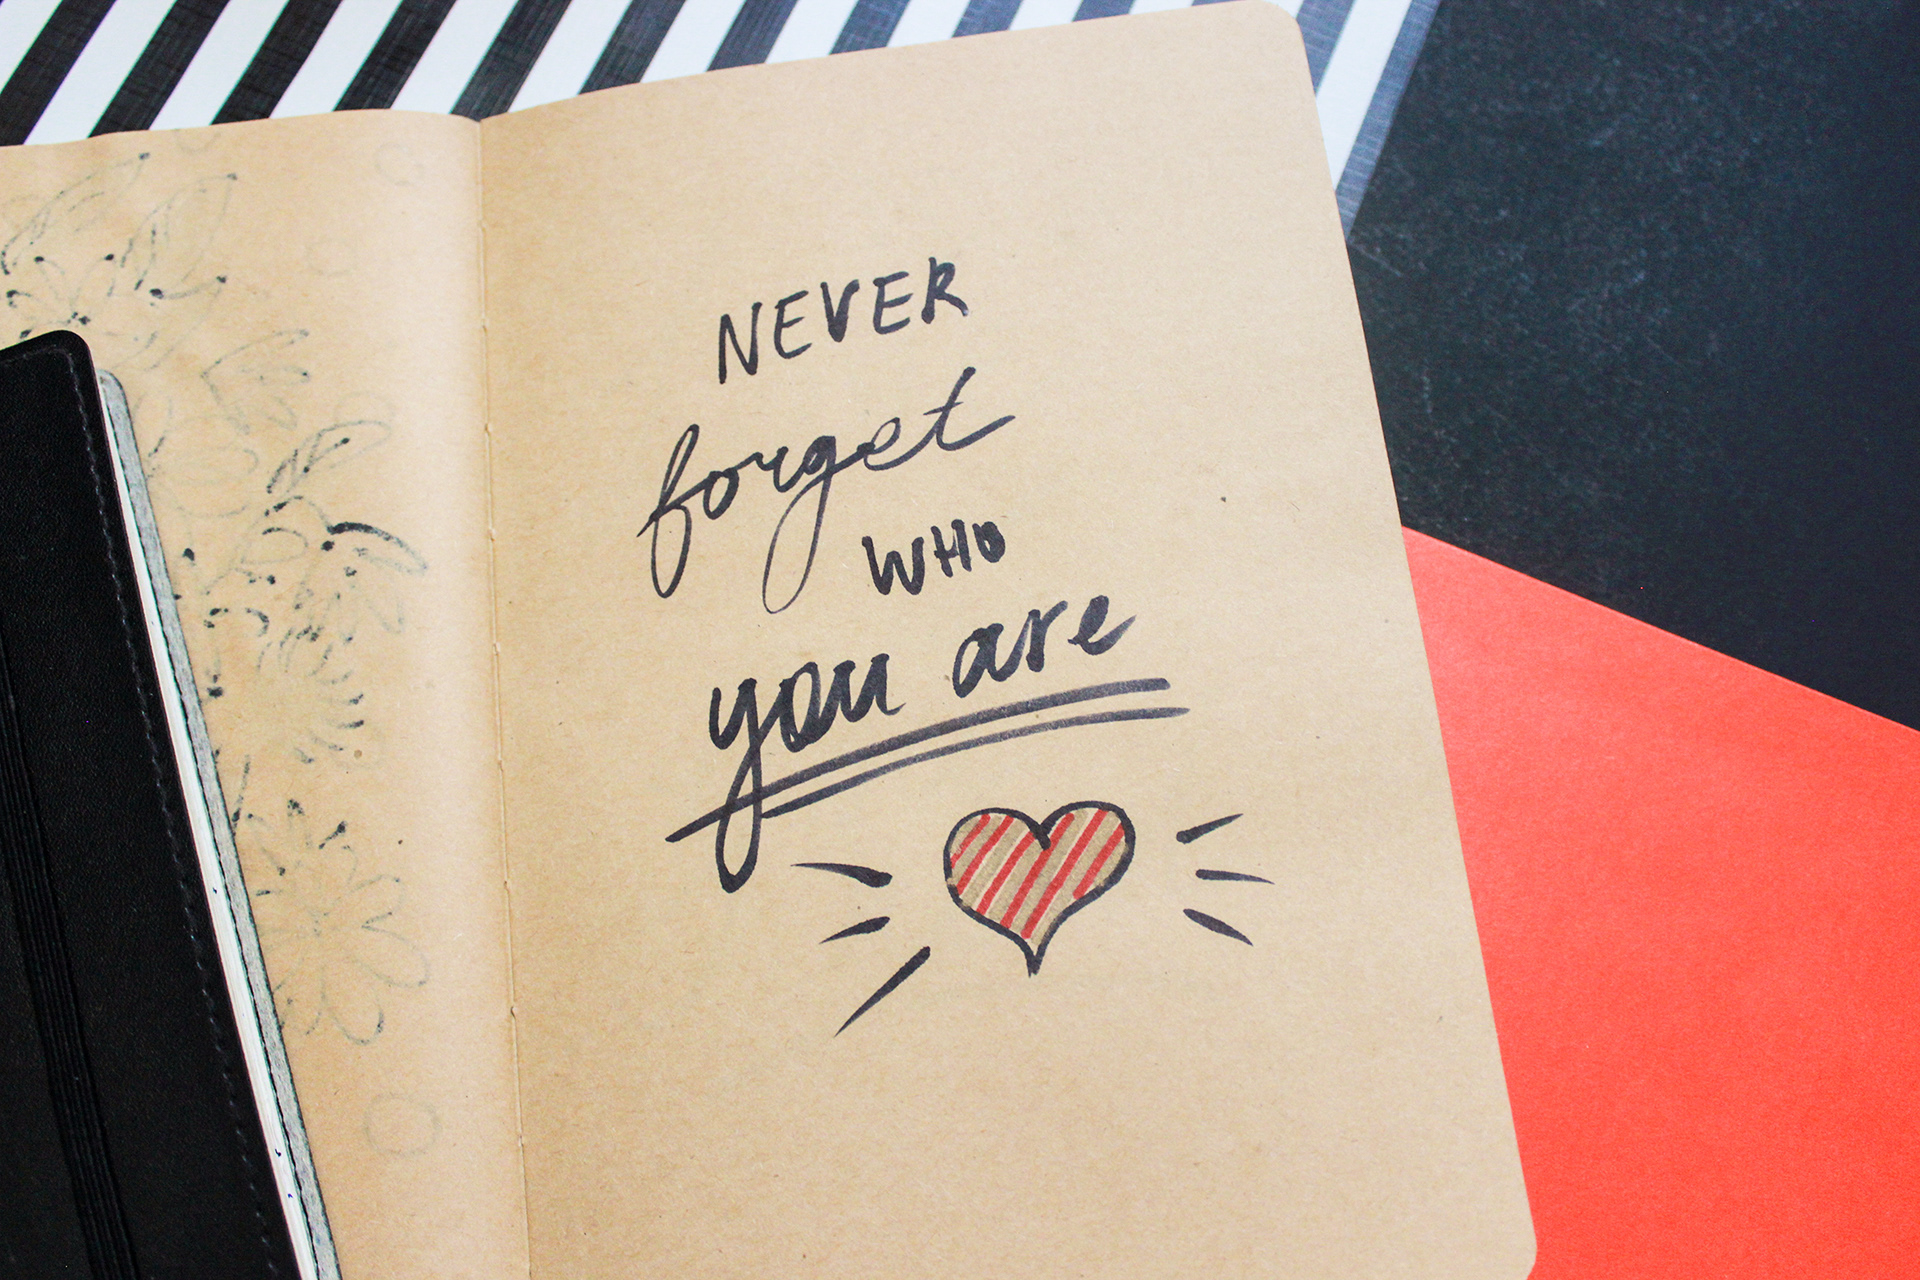 NEVER
forget
WHO
you are